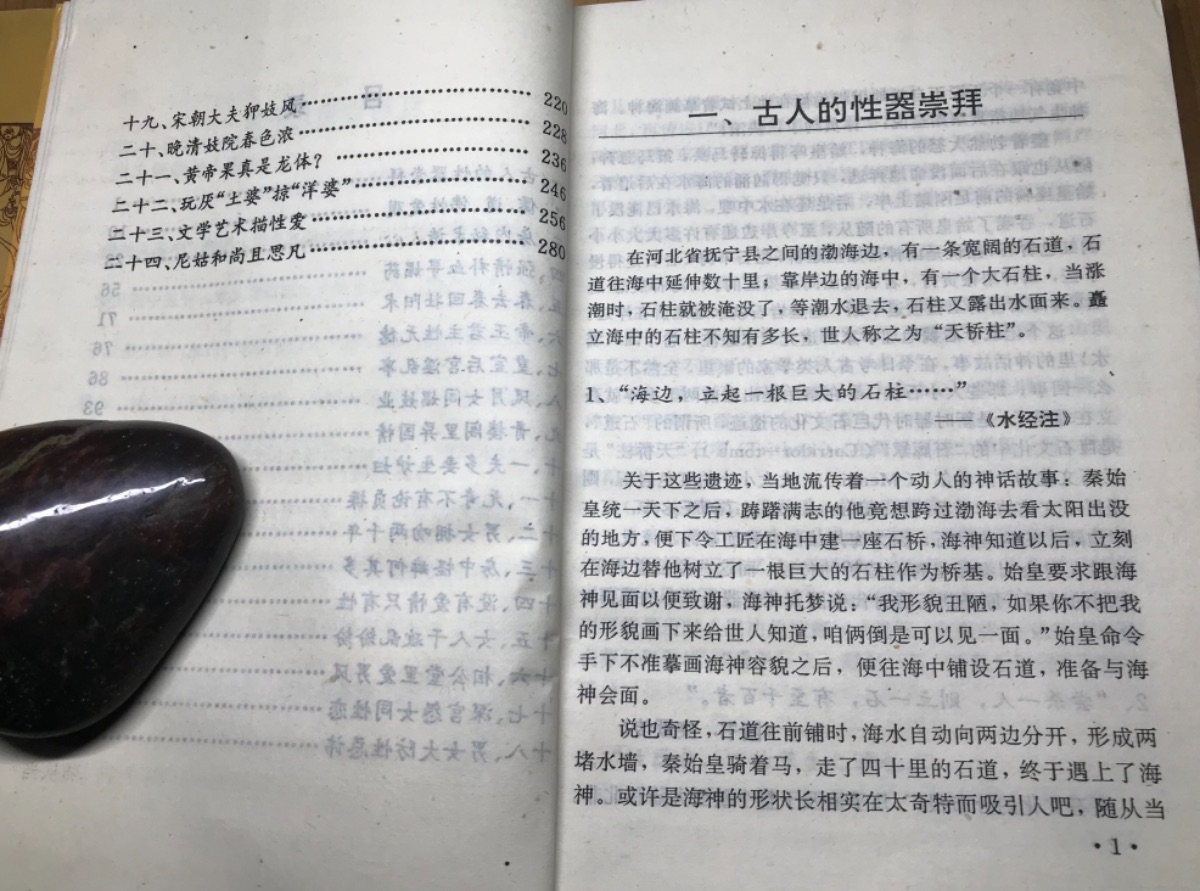 十九、宋朝大夫狎妓风……………………220
二十、晚清妓院春色浓……………………228
二十一、黄帝果真是龙体？……………………236
二十二、玩厌“土婆”掠“洋婆”……………………246
二十三、文学艺术描性爱……………………256
二十四、尼姑和尚且思凡……………………280
一、古人的性器崇拜
在河北省抚宁县之间的渤海边，有一条宽阔的石道，石
道往海中延伸数十里；靠岸边的海中，有一个大石柱，当涨
潮时，石柱就被淹没了，等潮水退去，石柱又露出水面来。矗
立海中的石柱不知有多长，世人称之为“天桥柱”。
1、“海边，立起一根巨大的石柱……”
——《水经注》
关于这些遗迹，当地流传着一个动人的神话故事：秦始
皇统一天下之后，踌躇满志的他竟想跨过渤海去看太阳出没
的地方，便下令工匠在海中建一座石桥，海神知道以后，立刻
在海边替他树立了一根巨大的石柱作为桥基。始皇要求跟海
神见面以便致谢，海神托梦说：“我形貌丑陋，如果你不把我
的形貌画下来给世人知道，咱俩倒是可以见一面。”始皇命令
手下不准摹画海神容貌之后，便往海中铺设石道，准备与海
神会面。
说也奇怪，石道往前铺时，海水自动向两边分开，形成两
堵水墙，秦始皇骑着马，走了四十里的石道，终于遇上了海
神。或许是海神的形状长相实在太奇特而吸引人吧，随从当
·1·